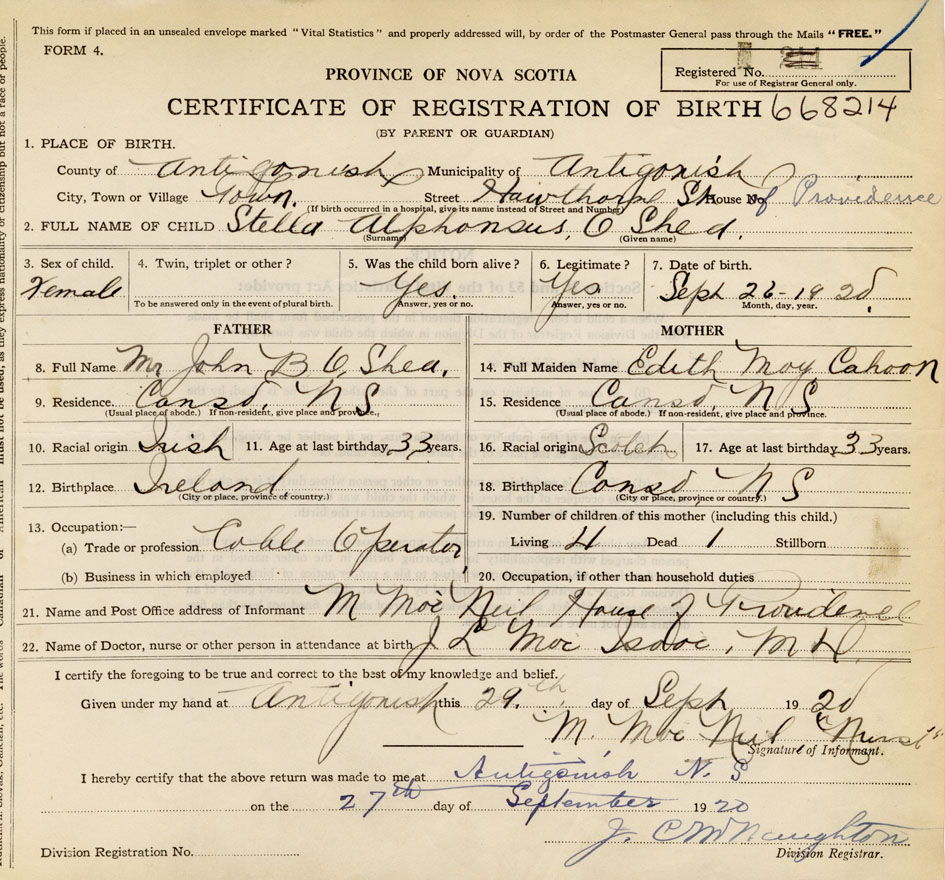 This form if placed in an unsealed envelope marked "Vital Statistics" and properly addressed will, by order of the Postmaster General pass through the Mails "FREE."
FORM 4.
Registered No.
For use of Registrar General only.
PROVINCE OF NOVA SCOTIA
CERTIFICATE OF REGISTRATION OF BIRTH 668214
(BY PARENT OR GUARDIAN)
1. PLACE OF BIRTH.
County of Antigonish Municipality of Antigonish
City, Town or Village Town. Street Hawthorne St. House No. of Providence
(If birth occurred in a hospital, give its name instead of Street and Number)
2. FULL NAME OF CHILD Stella Alphonsus, O Shea.
(Surname) (Given name)
3. Sex of child. 4. Twin, triplet or other? 5. Was the child born alive? 6. Legitimate? 7. Date of birth.
Female Yes. Yes Sept 26-1920
To be answered only in the event of plural birth. Answer, yes or no. Answer, yes or no. Month, day, year.
FATHER MOTHER
8. Full Name Mr John B O Shea. 14. Full Maiden Name Edith May Cahoon
9. Residence. Canso, N S 15. Residence Canso, N S
(Usual place of abode.) If non-resident, give place and province. (Usual place of abode.) If non-resident, give place and province.
10. Racial origin Irish 11. Age at last birthday 33 years. 16. Racial origin Scotch 17. Age at last birthday 33 years.
12. Birthplace Ireland 18. Birthplace Canso N S
(City or place, province or country.) (City or place, province or country.)
13. Occupation:— 19. Number of children of this mother (including this child.)
(a) Trade or profession Cable Operator Living 4 Dead 1 Stillborn
(b) Business in which employed 20. Occupation, if other than household duties
21. Name and Post Office address of Informant M Mac Neil House of Providence
22. Name of Doctor, nurse or other person in attendance at birth J L Mac Isaac, M D.
I certify the foregoing to be true and correct to the best of my knowledge and belief.
Given under my hand at Antigonish this 29th day of Sept 1920
M. Mac Neil Nurse
Signature of Informant.
I hereby certify that the above return was made to me at Antigonish N. S
on the 27th day of September 1920
J. C McNaughton
Division Registration No. Division Registrar.